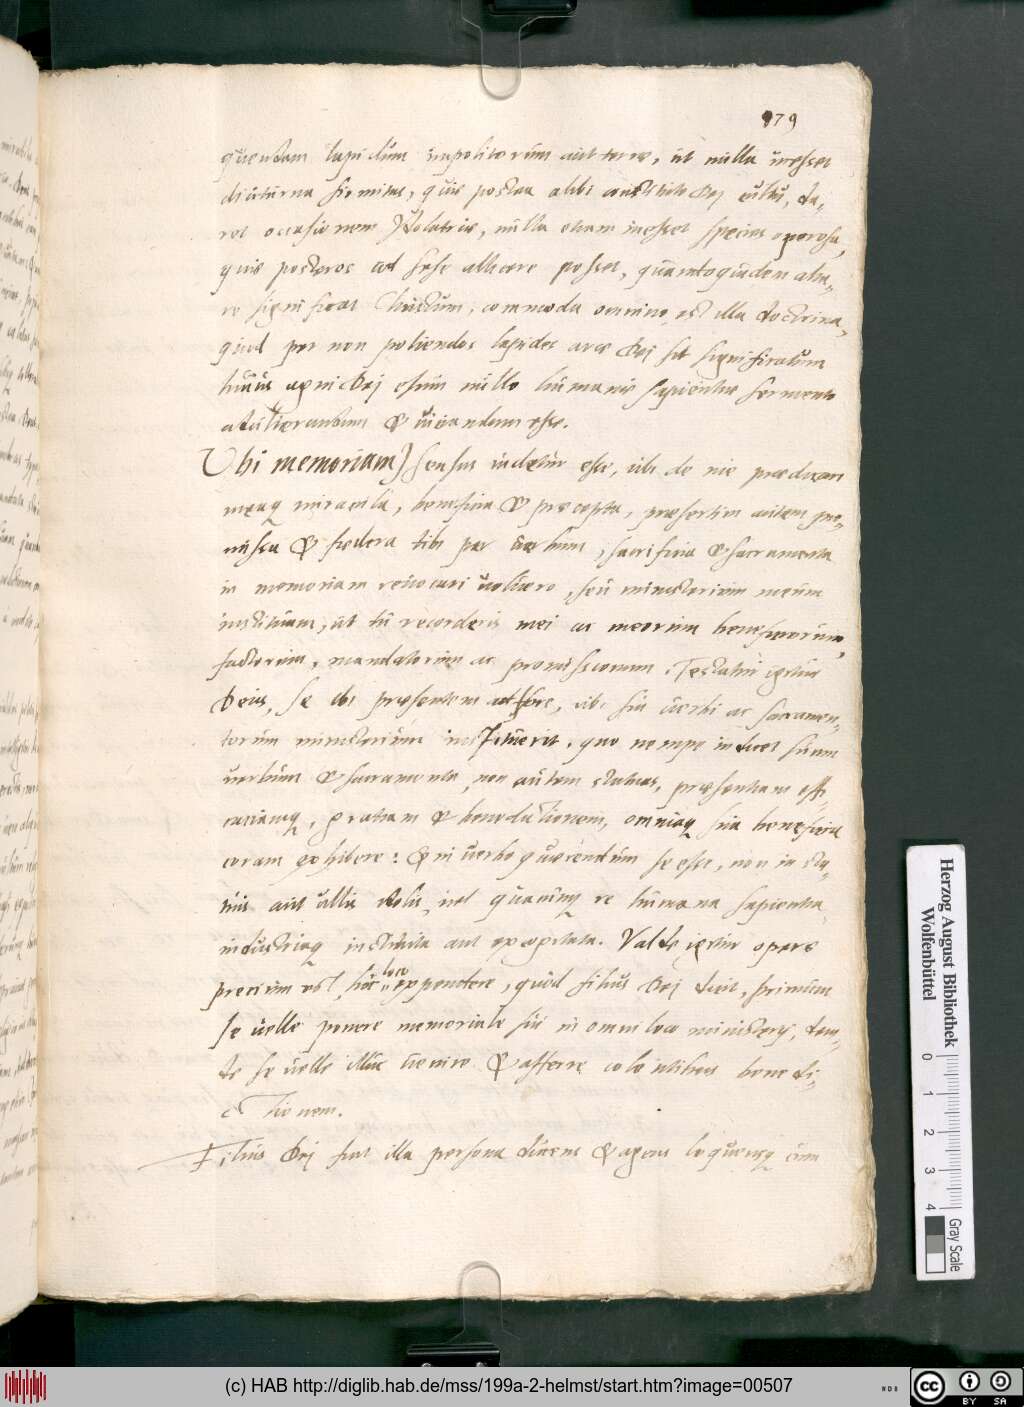 979
quendam lapidum impolitorum aut terrae, ut nulla inesset
diuturna firmitas, quae postea alibi instituto Dej cultu, da¬
ret occasionem Idolatriae, nulla etiam inesset species operosa,
quae posteros ad sese allicere posset, quandoquidem alta¬
re significat Christum, commoda omnino est illa doctrina,
quod per non poliendos lapides arae Dej sit significatum
huius agni Dej esum nullo humanae sapientiae fermento
esse.
Ubi memoriam) sensus videtur esse, ubi de me praedicari
meaq miracula, beneficia & praecepta, praesertim autem pro¬
missa & foedera tibi per verbum, sacrificia & sacramenta
in memoriam reuocari voluero, seu ministerium meum
instituam, ut tu recorderis mei ac meorum beneficiorum,
factorum, mandatorum ac promissionum. Testatur igitur
Deus, se ibi praesentem adfore, ubi sui verbi ac sacramen¬
torum ministerium instituerit, quo nempe indicet suum
verbum & sacramenta, non autem statuas, praesentiam effi¬
caciamq, gratiam & benedictionem, omniaq sua beneficia
coram exhibere: & in verbo quaerendum se esse, non in sta¬
tuis aut ullis idolis, vel quacunq re humana sapientia
industriaq instituta aut excogitata. Valde igitur operae
precium est, hoc loco expendere, quod filius Dej dicit, primum
se velle ponere memoriale sui in omni loco ministerij, dein¬
de se velle illuc venire & afferre colentibus bene di¬
ctionem.
Filius Dej fuit illa persona dicens & agens loquensq cum
Herzog August Bibliothek
Wolfenbüttel
0 1 2 3 4
Gray Scale
(c) HAB http://diglib.hab.de/mss/199a-2-helmst/start.htm?image=00507
cc BY SA